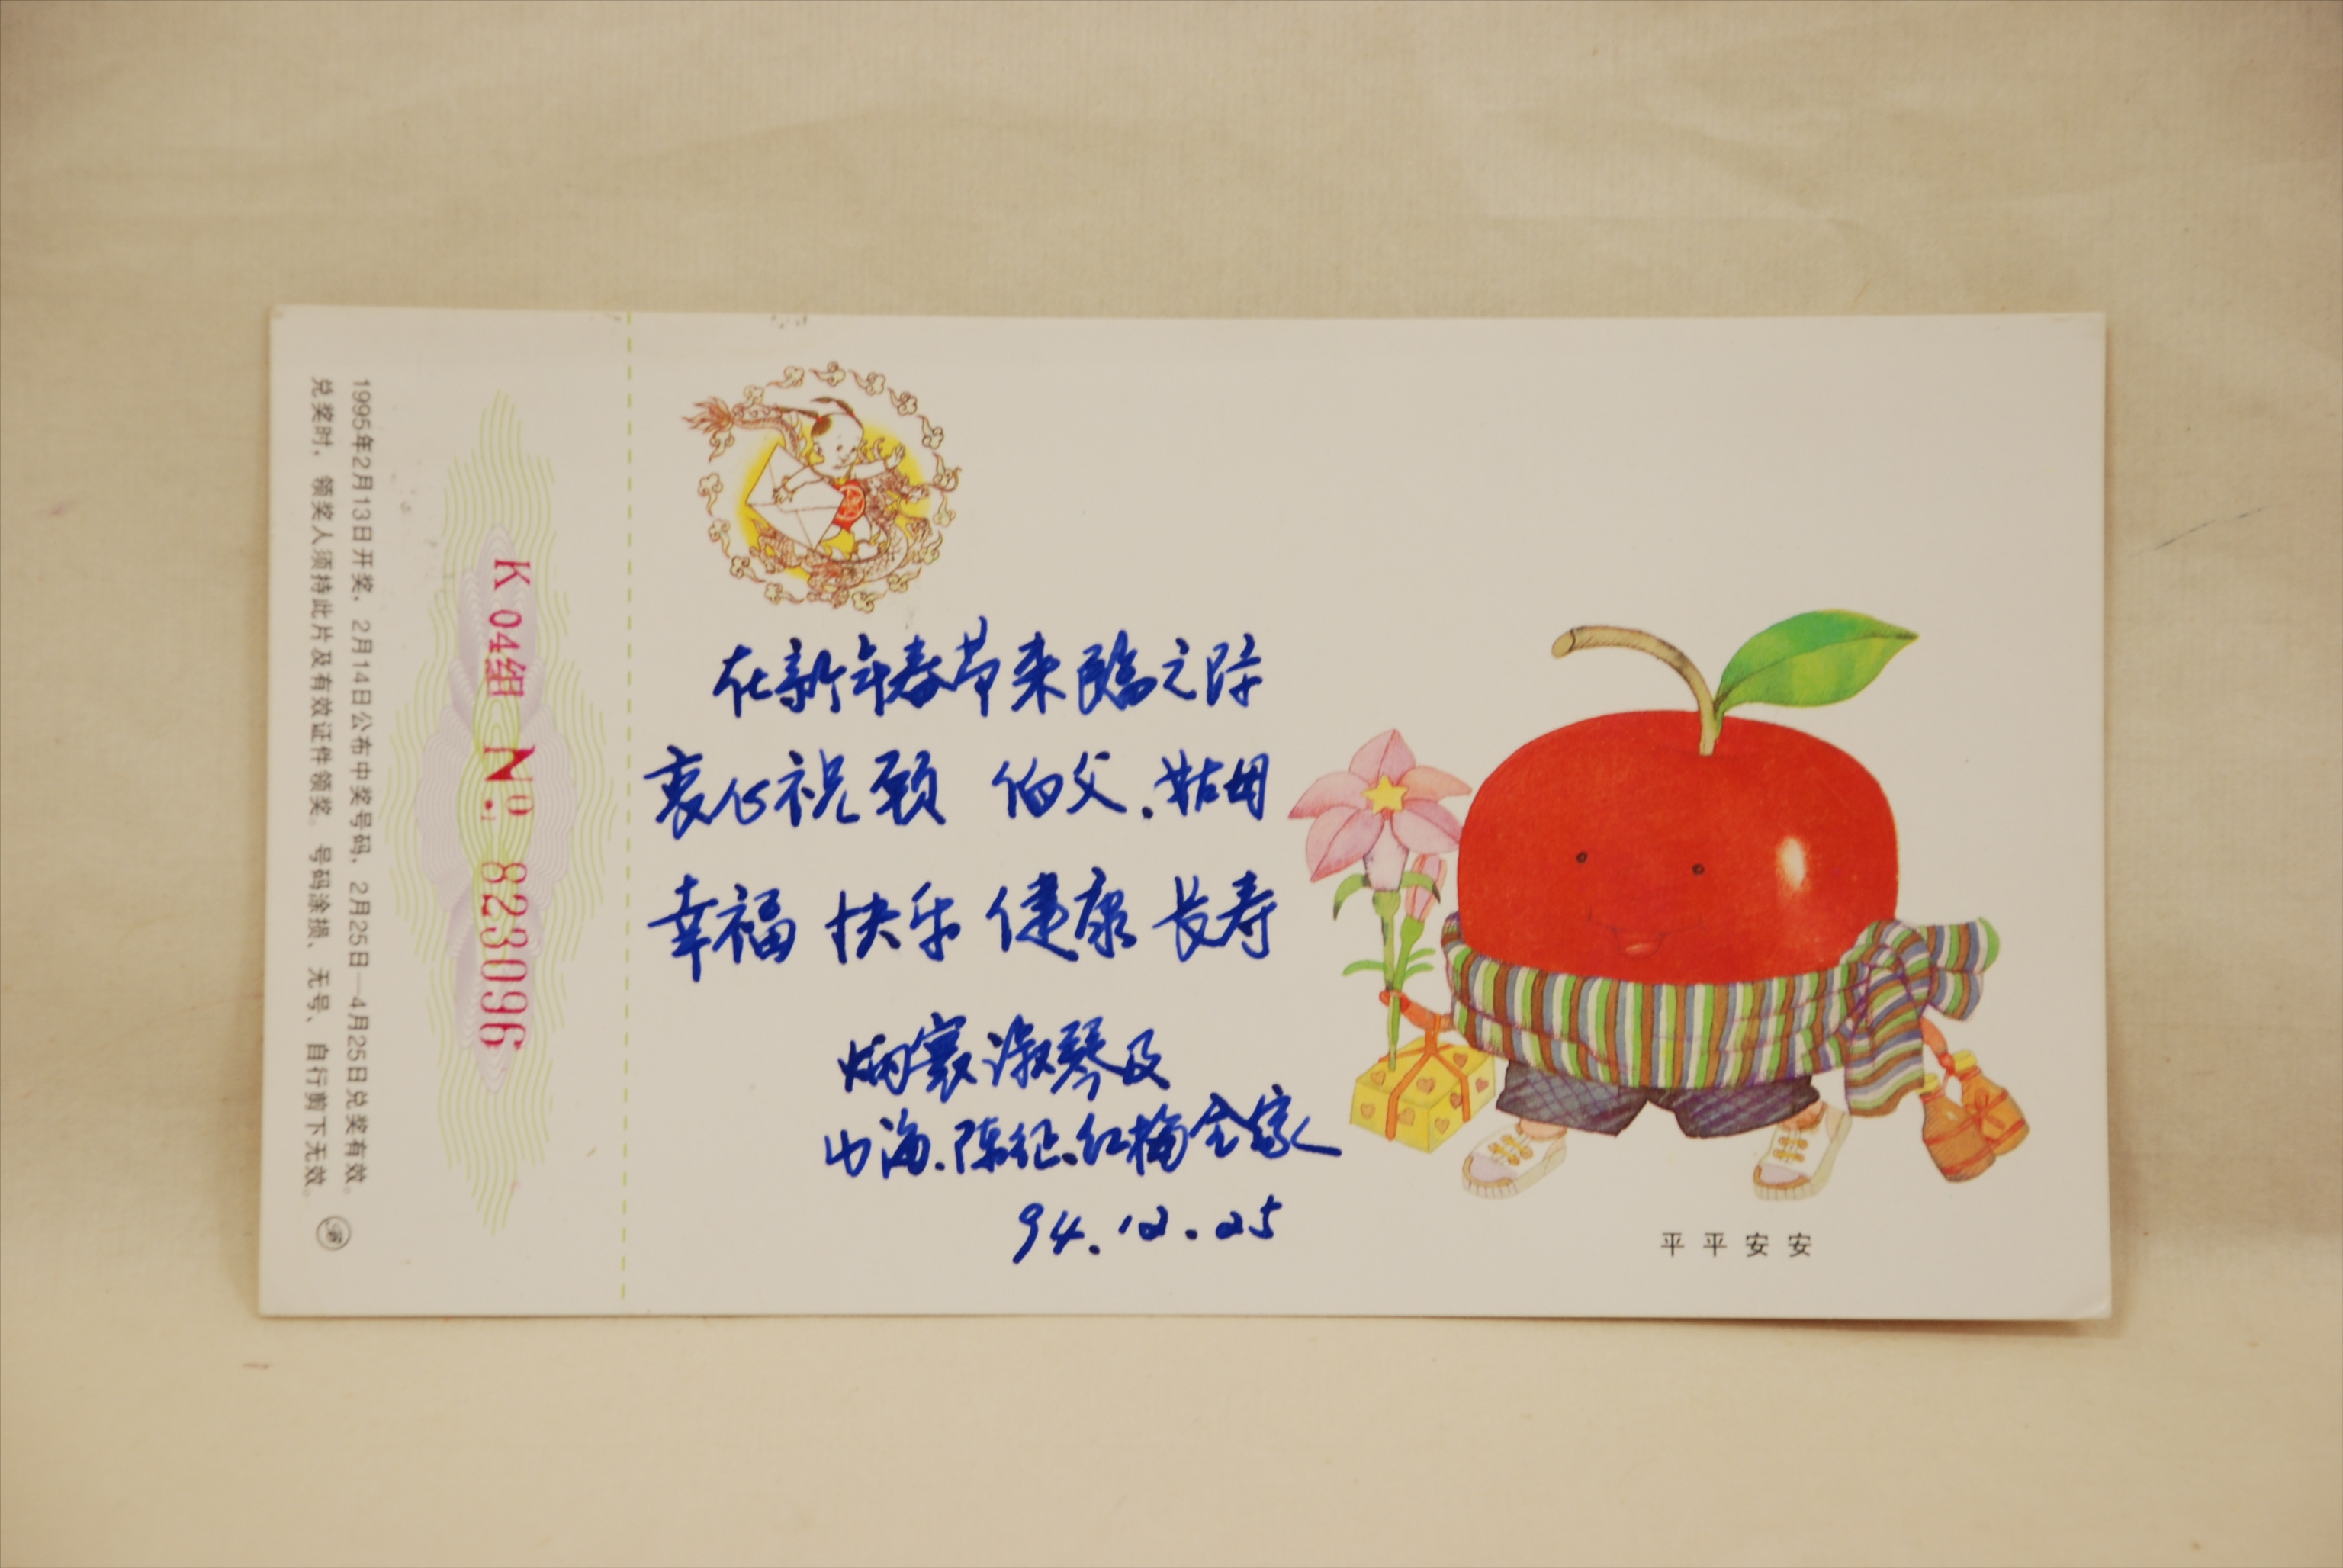 1995年2月13日开奖，2月14日公布中奖号码，2月25日—4月25日兑奖有效。
兑奖时，领奖人须持此片及有效证件领奖。号码涂损、无号、自行剪下无效。
K 04组 Nº: 823096
在新年春节来临之际
衷心祝愿 伯父、姑母
幸福 快乐 健康 长寿
炳寰淑琴及
山海、陈征、红梅全家
94.12.25
平平安安